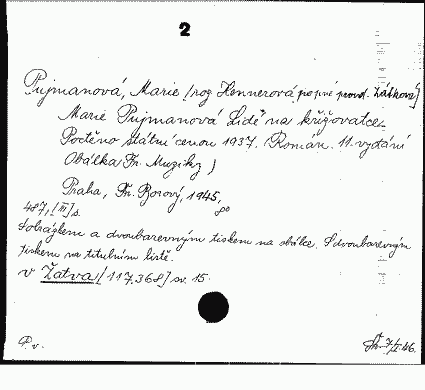 2
Pujmanová, Marie /roz. Hennerová, poprvé provd. Zátková/
Marie Pujmanová Lidé na křižovatce.
Poctěno státní cenou 1937. (Román. 11. vydání
Obálka Fr. Muziky)
Praha, Fr. Borový, 1945,
8°
487, [III] s.
S obrázkem a dvoubarevným tiskem na obálce. S dvoubarevným
tiskem na titulním listě.
v Žatva/[117.368] sv. 15.
P. v.